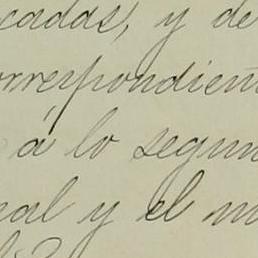 cadas, y de
orrespondien
á lo segun
nal y el m